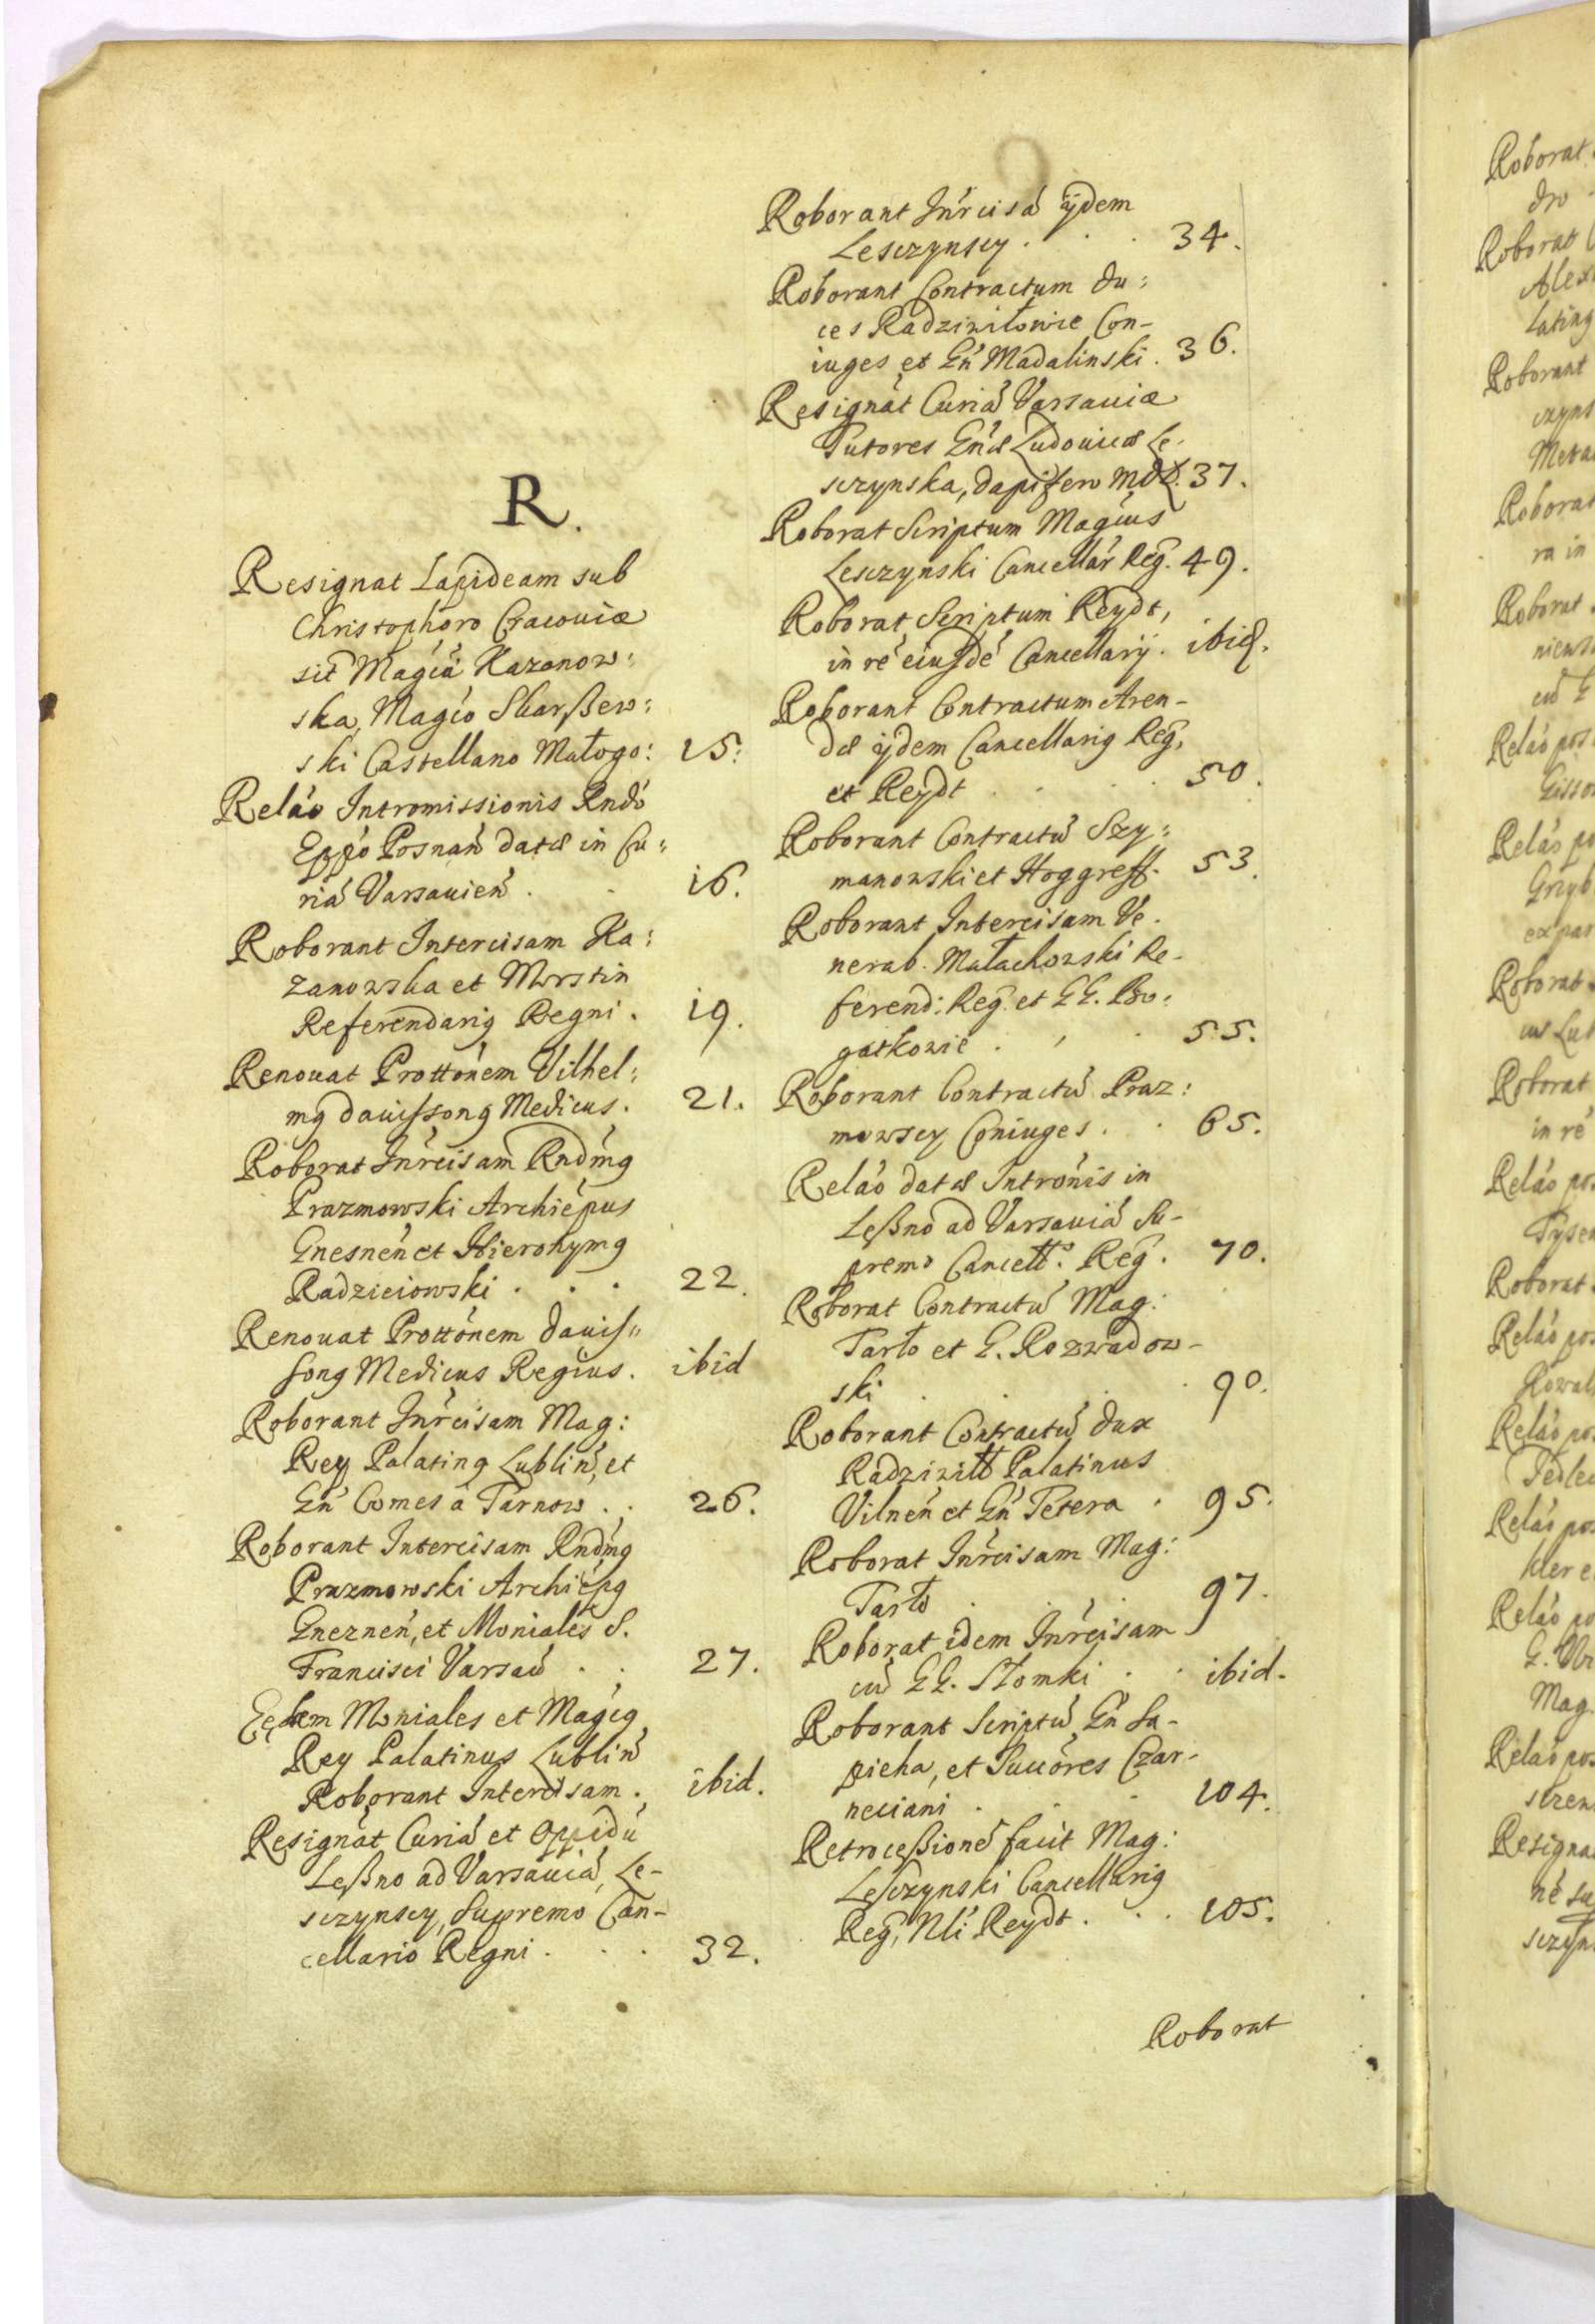 R.
Resignat Lapideam sub
Christophoro Cracouiæ
sit Magca Kazanow:
ska, Magco Skarßew:
ski Castellano Małogo: 15:
Relao Intromissionis Rndo
Eppo Posnan datæ in Cu:
ria Varsauien . . 16.
Roborant Intercisam Ka:
zanowska et Morstin
Referendarig Regni . 19.
Renouat Prottonem Vilhel:
mg dauissong Medicus. 21.
Roborat Inrcisam Rndmg
Prazmowski Archiepus
Gnesnen et Hieronymg
Radzieiowski . . . 22.
Renouat Prottonem dauis"
song Medicus Regius. ibid
Roborant Inrcisam Mag:
Rey Palating Lublin, et
Gn Comes a Tarnow . . 26.
Roborant Intercisam Rndmg
Prazmowski Archiepg
Gneznen, et Moniales S.
Francisci Varsau . . 27.
Eædem Moniales et Magcg
Rey Palatinus Lublin
Roborant Intercisam . ibid.
Resignat Curia et Oppidu
Leßno ad Varsauia, Le-
sczynscy, Supremo Can-
cellario Regni . . . 32.
Roborant Inrcisa ijdem
Lesczynscy . . . 34.
Roborant Contractum du:
ces Radziwiłowie Con-
iuges et Gn Madalinski . 36.
Resignat Curia Varsauiæ
Tutores Gnæ Ludouicæ Le-
sczynska, dapifero MDL. 37.
Roborat Scriptum Magcus
Lesczynski Cancellar Reg. 49.
Roborat Scriptum Reydt,
in re eiusde Cancellarij. ibid.
Roborant Contractum Aren-
dæ ijdem Cancellarig Reg,
et Reydt . . . 50.
Roborant Contractu Szy:
manowski et Hoggreff. 53.
Roborant Intercisam Ve.
nerab. Małachowski Re-
ferend: Reg et GG. Bro:
gatkowie . , . 55.
Roborant Contractu Praz:
mowscy Coniuges . . 65.
Relao datæ Intronis in
Leßno ad Varsauia Su-
premo Cancell: Reg . 70.
Roborat Contractu Mag:
Tarło et G. Rozwadow-
ski . . . . 90.
Roborant Contractu dux
Radziwiłł Palatinus
Vilnen et Gn Tetera . 95.
Roborat Inrcisam Mag:
Tarło . . . 97.
Roborat idem Inrcisam
cu GG. Słomki . . ibid.
Roborant Scriptu Gn Sa-
pieha, et Succores Czar-
neciani . . . 104.
Retrocessione facit Mag:
Lesczynski Cancellarig
Reg, Nli Reydt . . . 105.
Roborat
Roborat
Roborat
Alex
Lating
Roborant
czyns
Roborat
ra in
Roborat
niews
Relao pos
Relao po
Grzyb
ex par
Roborat
Roborat
in re
Relao pos
Roborat
Relao pos
Kowal
Relao pos
Relao pos
Relao po
Mag.
Relao pos
Resignat
sczyn